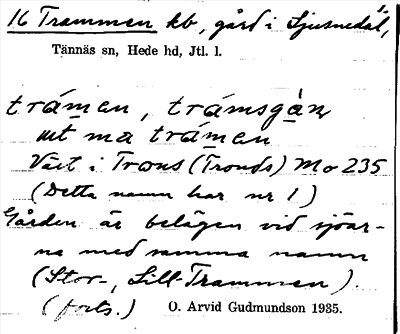 16 Trammen kb, gård i Ljusnedal,
Tännäs sn, Hede hd, Jtl. l.
trámen, trámsgån
ut ma trámen
Väst i Trons (Tronds) Mo 235
(Detta namn har nr 1)
Gården är belägen vid sjöar-
na med samma namn
(Stor-, Lill-Trammen).
(forts.) O. Arvid Gudmundson 1935.